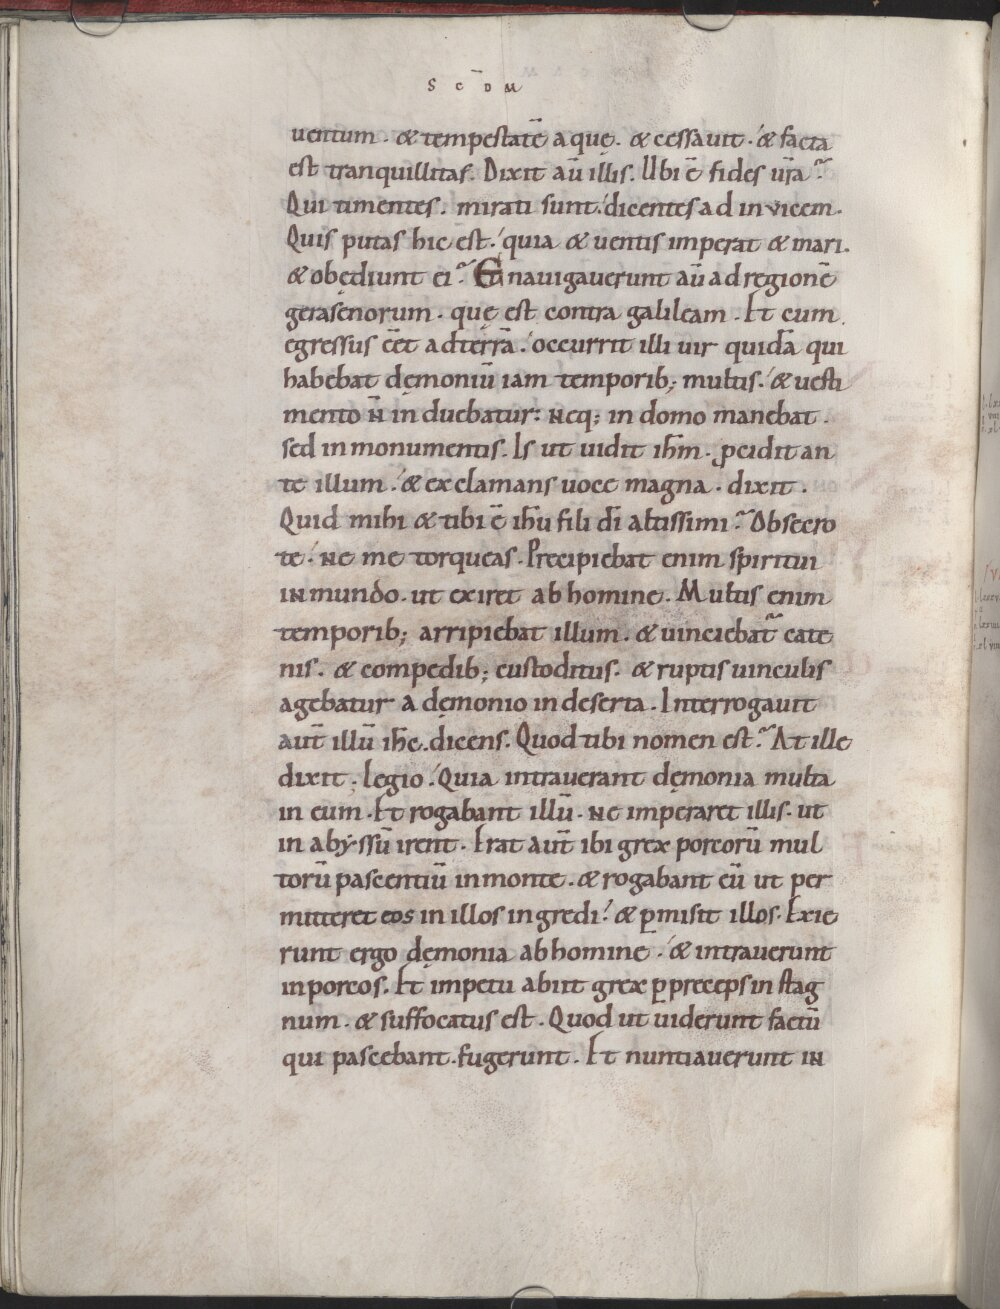 SCD̅M
uentum. & tempestatē aquę. & cessauit. & facta
est tranquillitas. Dixit aū illis. Ubi ē fides ur̄a?
Qui timentes. mirati sunt. dicentes ad inuicem.
Quis putas hic est. quia & uentis imperat & mari.
& obędiunt ei? Enauigauerunt aū ad regionē
gerasenorum. quę est contra galileam. Et cum
egressus eēt ad terrā. occurrit illi uir quidā qui
habebat dęmoniū iam temporib; multis. & uesti
mento n̄ induebatur: neq; in domo manebat.
sed in monumentis. Is ut uidit ih̄m. ꝓcidit an
te illum. & exclamans uoce magna. dixit.
Quid mihi & tibi ē ih̄u fili dī altissimi? Obsecro
te. ne me torqueas. Precipiebat enim spiritui
inmundo. ut exiret ab homine. Multis enim
temporib; arripiebat illum. & uinciebat̃ cate
nis. & compedib; custoditus. & ruptis uinculis
agebatur a dęmonio in deserta. Interrogauit
aut̄ illū ih̄c. dicens. Quod tibi nomen est? At ille
dixit. legio. Quia intrauerant dęmonia multa
in eum. Et rogabant illū. ne imperaret illis. ut
in abyssū irent. Erat aut̄ ibi grex porcorū mul
torū pascentiū in monte. & rogabant eū ut per
mitteret eos in illos ingredi. & ꝑmisit illos. Exie
runt ergo dęmonia ab homine. & intrauerunt
in porcos. Et impetu abiit grex ꝑ pręceps in stag
num. & suffocatus est. Quod ut uiderunt factū
qui pascebant. fugerunt. Et nuntiauerunt in